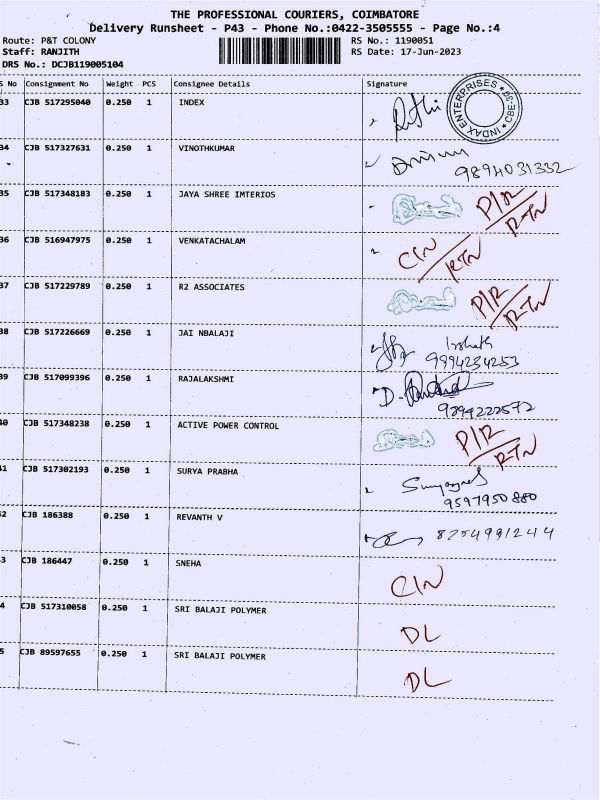 THE PROFESSIONAL COURIERS, COIMBATORE
Delivery Runsheet - P43 - Phone No.:0422-3505555 - Page No.:4
Route: P&T COLONY
Staff: RANJITH
DRS No.: DCJB119005104
RS No.: 1190051
RS Date: 17-Jun-2023
S No Consignment No Weight PCS Consignee Details Signature
33 CJB 517295040 0.250 1 INDEX
INDAX ENTERPRISES CBE-30
34 CJB 517327631 0.250 1 VINOTHKUMAR
9894031332
35 CJB 517348183 0.250 1 JAYA SHREE IMTERIOS P/R
RTN
36 CJB 516947975 0.250 1 VENKATACHALAM CIN
RTN
37 CJB 517229789 0.250 1 R2 ASSOCIATES P/R
RTN
38 CJB 517226669 0.250 1 JAI NBALAJI
9994234253
39 CJB 517099396 0.250 1 RAJALAKSHMI
9894222572
40 CJB 517348238 0.250 1 ACTIVE POWER CONTROL P/R
RTN
41 CJB 517302193 0.250 1 SURYA PRABHA
9597950880
2 CJB 186388 0.250 1 REVANTH V 8254991244
3 CJB 186447 0.250 1 SNEHA CIN
4 CJB 517310058 0.250 1 SRI BALAJI POLYMER DL
5 CJB 89597655 0.250 1 SRI BALAJI POLYMER DL